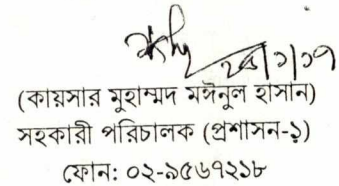 ২৪/১/১৭
(কায়সার মুহাম্মদ মঈনুল হাসান)
সহকারী পরিচালক (প্রশাসন-১)
ফোন: ০২-৯৫৬৭২১৮